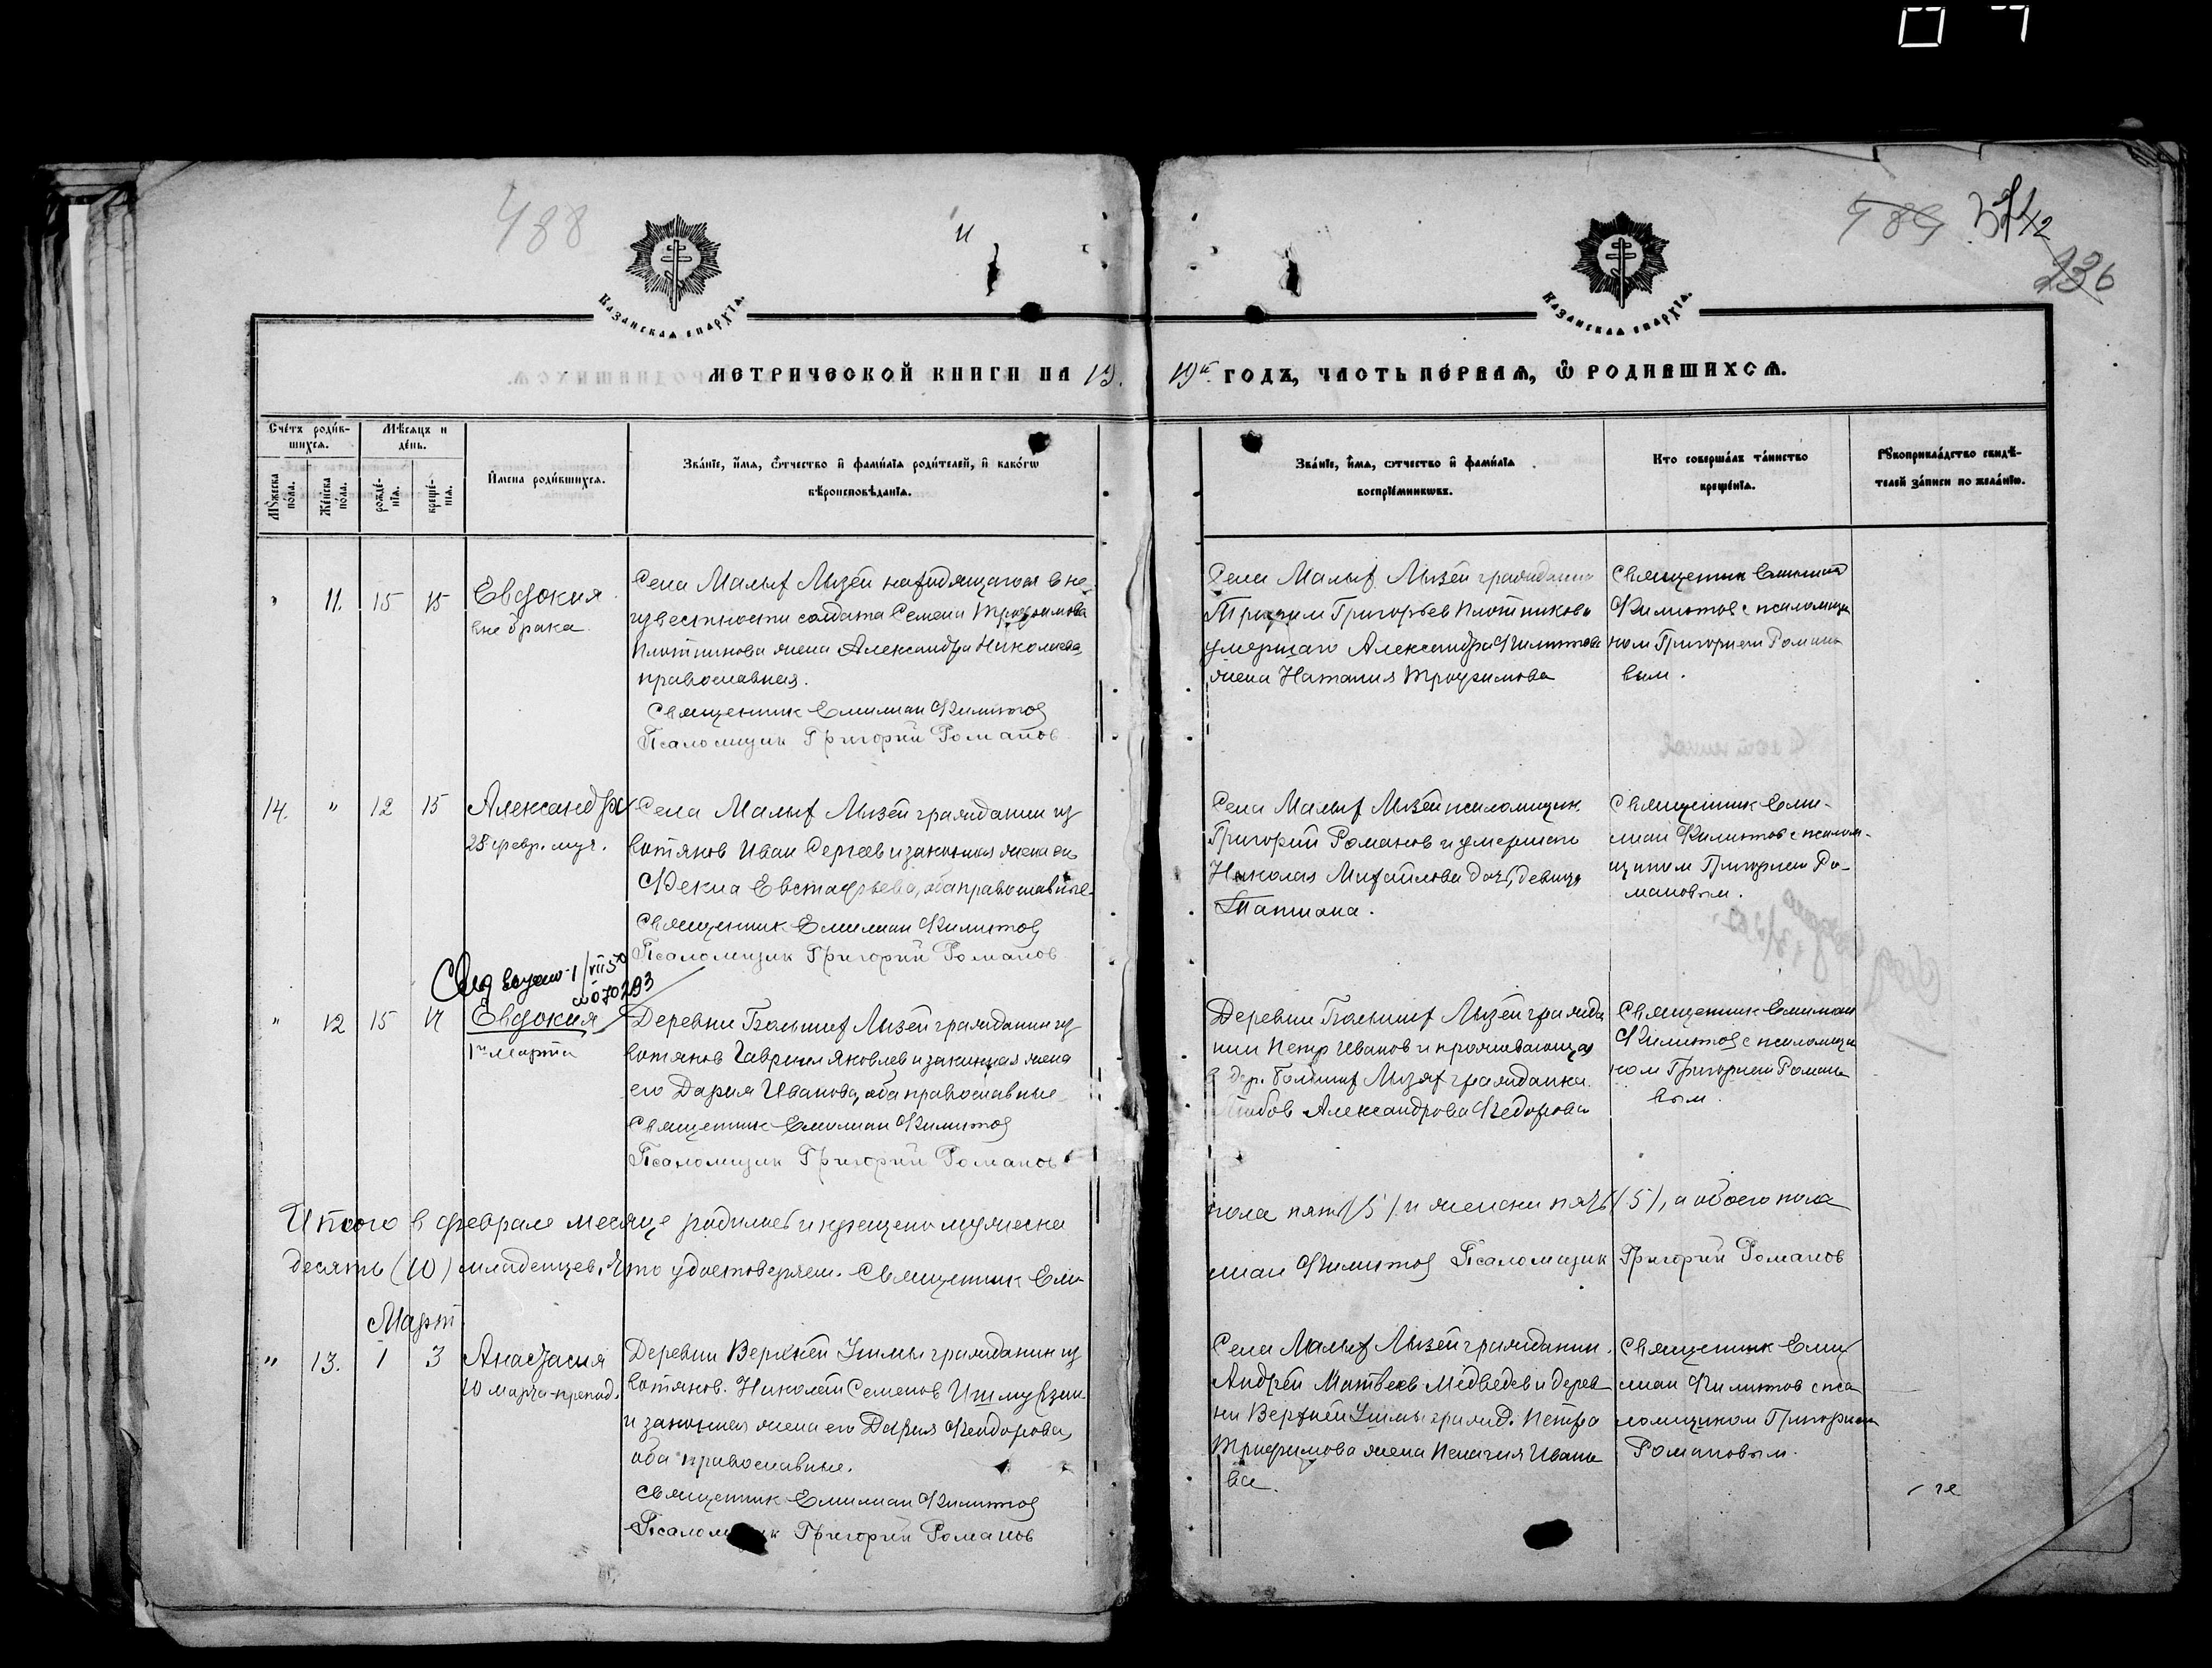 488
11
489
236
Казанскаѧ єпархїѧ.
Казанскаѧ єпархїѧ.
МЕТРИЧЕСКОЙ КНИГИ НА 19
19й ГОДЪ, ЧАСТЬ ПЕРВАѦ, Ѿ РОДИВШИХСѦ.
Сче́тъ роди́в-
шихсѧ.
Мѣ́сяцъ и
де́нь.
Мꙋ́жеска
по́ла.
Же́нска
по́ла.
рожде́-
нїѧ.
креще́-
нїѧ.
И҆мена роди́вшихсѧ.
Зва́нїе, и҆́мѧ, ѻ҆́тчество и҆ фами́лїѧ роди́телей, и҆ како́гѡ
вѣроисповѣ́данїѧ.
Зва́нїе, и҆́мѧ, ѻ҆тчество и҆ фами́лїѧ
воспрїе́мникѡвъ.
Кто соверша́лъ та́инство
креще́нїѧ.
Рꙋкоприкла́дство свидѣ́-
телей за́писи по жела́нїю.
" 11. 15 15 Евдокия
вне брака
Села Малых Лызей находящагося в не-
известности солдата Семена Трофимова
Плотникова жена Александра Николаева,
православная.
Священник Емилиан Филиппов
Псаломщик Григорий Романов
Села Малых Лызей гражданин
Трофим Григорьев Плотников и
умершаго Александра Филиппова
жена Наталия Трофимова
Священник Емилиан
Филиппов с псаломщи
ком Григорием Романо
вым.
14. " 12 15 Александр
28 февр. муч.
Села Малых Лызей гражданин из
вотяков Иван Сергеев и законная жена его
Фекла Евстафьева, оба православные
Священник Емилиан Филиппов
Псаломщик Григорий Романов
Села Малых Лызей псаломщик
Григорий Романов и умершаго
Николая Михайлова дочь, девица
Татиана.
Священник Еми-
лиан Филиппов с псалом-
щиком Григорием Ро-
мановым.
070293
" 12 15 17 Евдокия
1го марта
Деревни Больших Лызей гражданин из
вотяков Гавриил Яковлев и законная жена
его Дария Иванова, оба православные
Священник Емилиан Филиппов
Псаломщик Григорий Романов
Деревни Больших Лызей гражда
нин Петр Иванов и проживающая
в дер. Больших Лызях гражданка
Любов Александрова Федорова
Священник Емилиан
Филиппов с псаломщи
ком Григорием Романо
вым.
Итого в феврале месяце родилось и крещено мужеска
пола пять (5) и женска пять (5), а обоего пола
десять (10) младенцев, что удостоверяем. Священник Еми
лиан Филиппов Псаломщик Григорий Романов
Март
" 13. 1 3 Анастасия
10 марта препод.
Деревни Верхней Ушмы гражданин из
вотяков Николай Семенов
и законная жена его Дария Феодорова,
оба православные.
Священник Емилиан Филиппов
Псаломщик Григорий Романов
Села Малых Лызей гражданин
Андрей Матвеев Медведев и дерев
ни Верхней Ушмы гражд. Петра
Трофимова жена Пелагия Ивано
ва.
Священник Еми
лиан Филиппов с пса
ломщиком Григорием
Романовым.